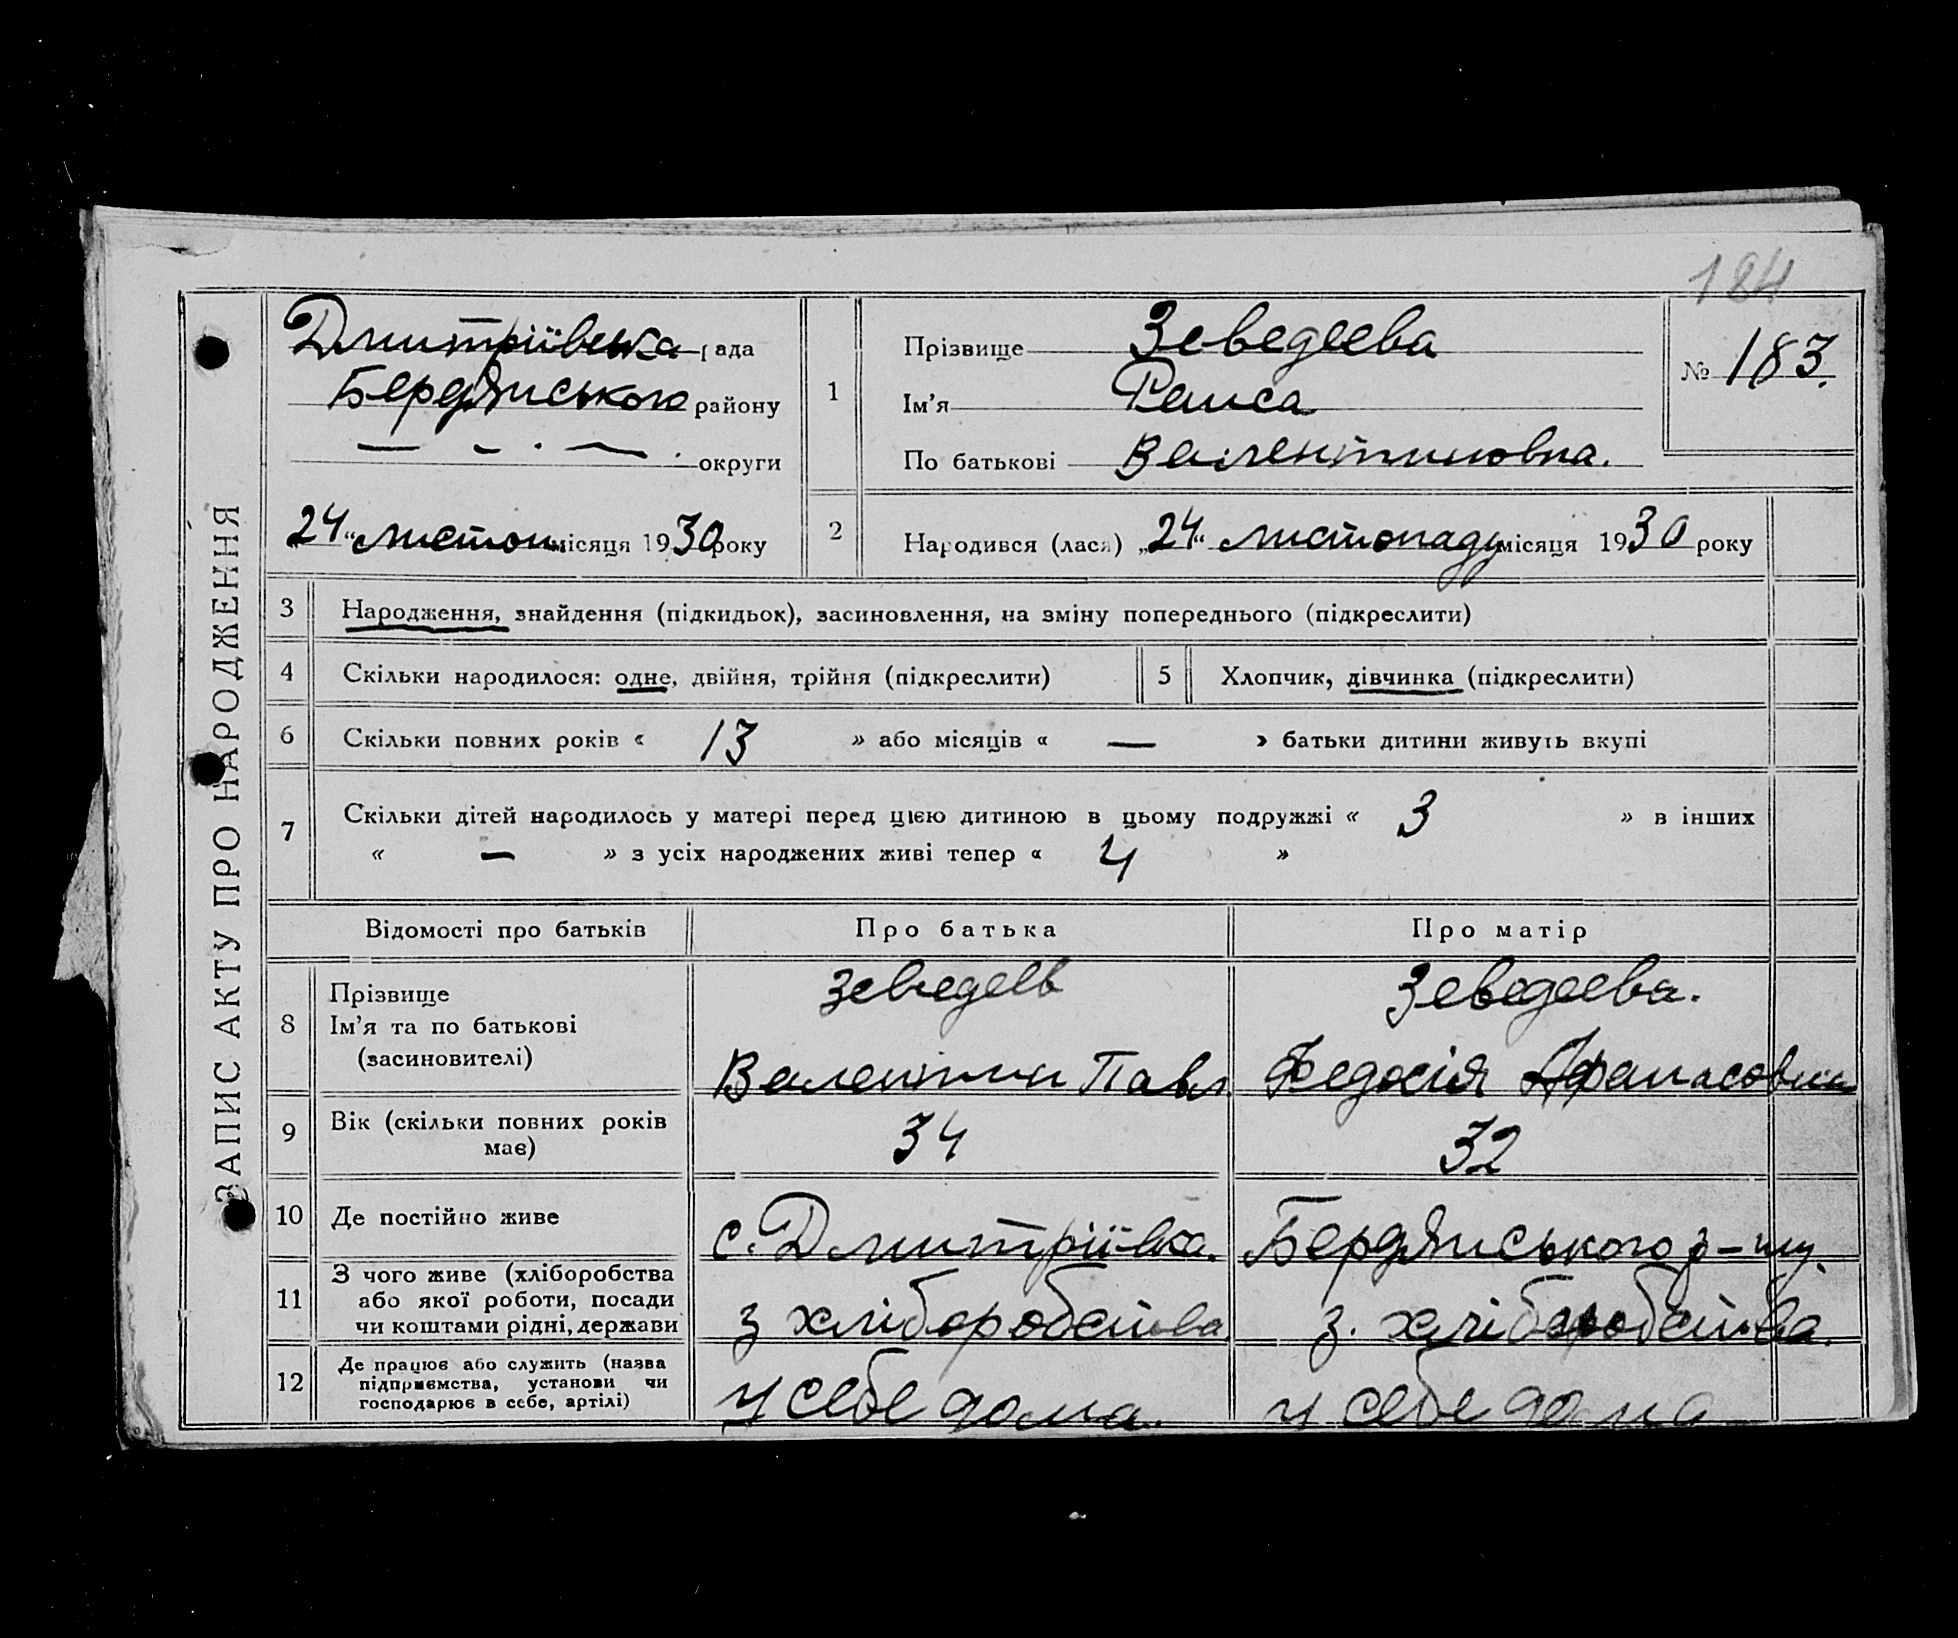 184
ЗАПИС АКТУ ПРО НАРОДЖЕННЯ
Дмитріївська рада
Бердянського району
округи
24 “листоп місяця 1930 року
1
Прізвище Зеведеева
Ім’я Раиса
По батькові Валентиновна.
№ 183.
2
Народився (лася) „24“ листопаду місяця 1930 року
3 Народження, знайдення (підкидьок), засиновлення, на зміну попереднього (підкреслити)
4 Скільки народилося: одне, двійня, трійня (підкреслити) 5 Хлопчик, дівчинка (підкреслити)
6 Скільки повних років « 13 » або місяців « — » батьки дитини живуть вкупі
7 Скільки дітей народилось у матері перед цією дитиною в цьому подружжі « 3 » в інших
« — » з усіх народжених живі тепер « 4 »
Відомості про батьків Про батька Про матір
8 Прізвище
Ім’я та по батькові
(засиновителі)
Зеведеев
Валентин Павл.
Зеведеева.
Федосія Афанасовна
9 Вік (скільки повних років
має)
34 32
10 Де постійно живе с. Дмитріївка. Бердянського р-ну.
11 З чого живе (хліборобства
або якої роботи, посади
чи коштами рідні, держави
з хліборобства з. хліборобства.
12 Де працює або служить (назва
підприємства, установи чи
господарює в себе, артілі)
у себе дома. у себе дома